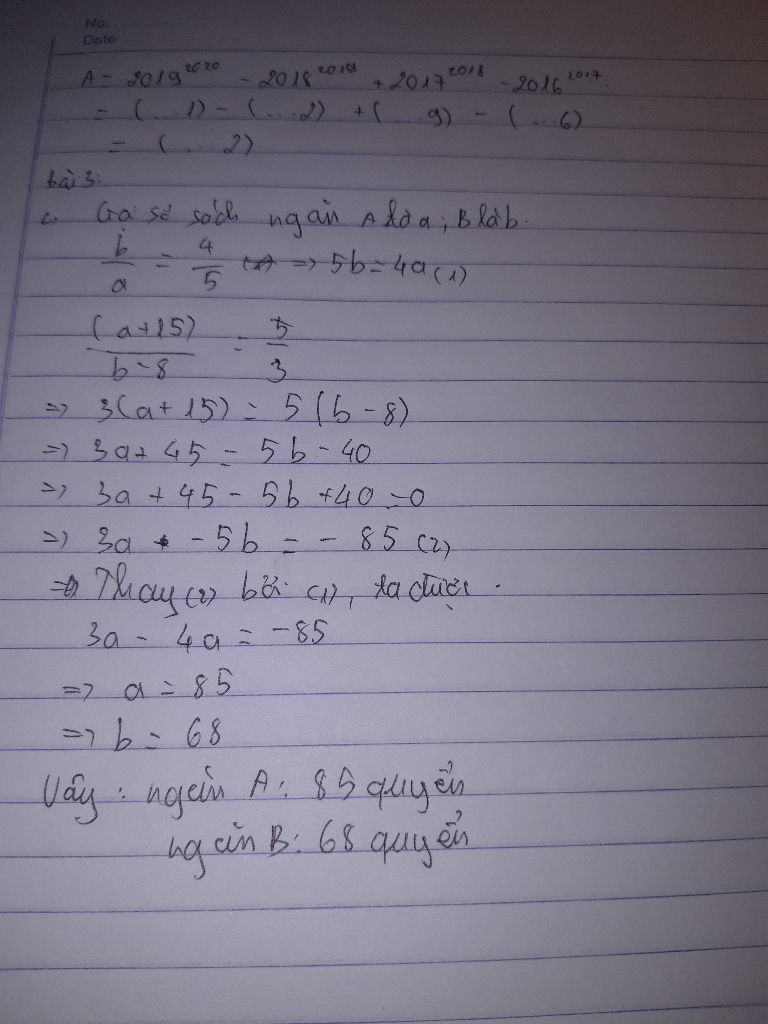 No.
Date
A = 2019^2020 - 2018^2019 + 2017^2018 - 2016^2017.
= (...1) - (...2) + (...9) - (...6)
= (...2)
bài 3:
Gọi số sách ngăn A là a; B là b.
b/a = 4/5 => 5b = 4a (1)
(a+15)/(b-8) = 5/3
=> 3(a+15) = 5(b-8)
=> 3a + 45 = 5b - 40
=> 3a + 45 - 5b + 40 = 0
=> 3a - 5b = - 85 (2)
Thay (2) bởi (1), ta được.
3a - 4a = -85
=> a = 85
=> b = 68
Vậy: ngăn A: 85 quyển
ngăn B: 68 quyển